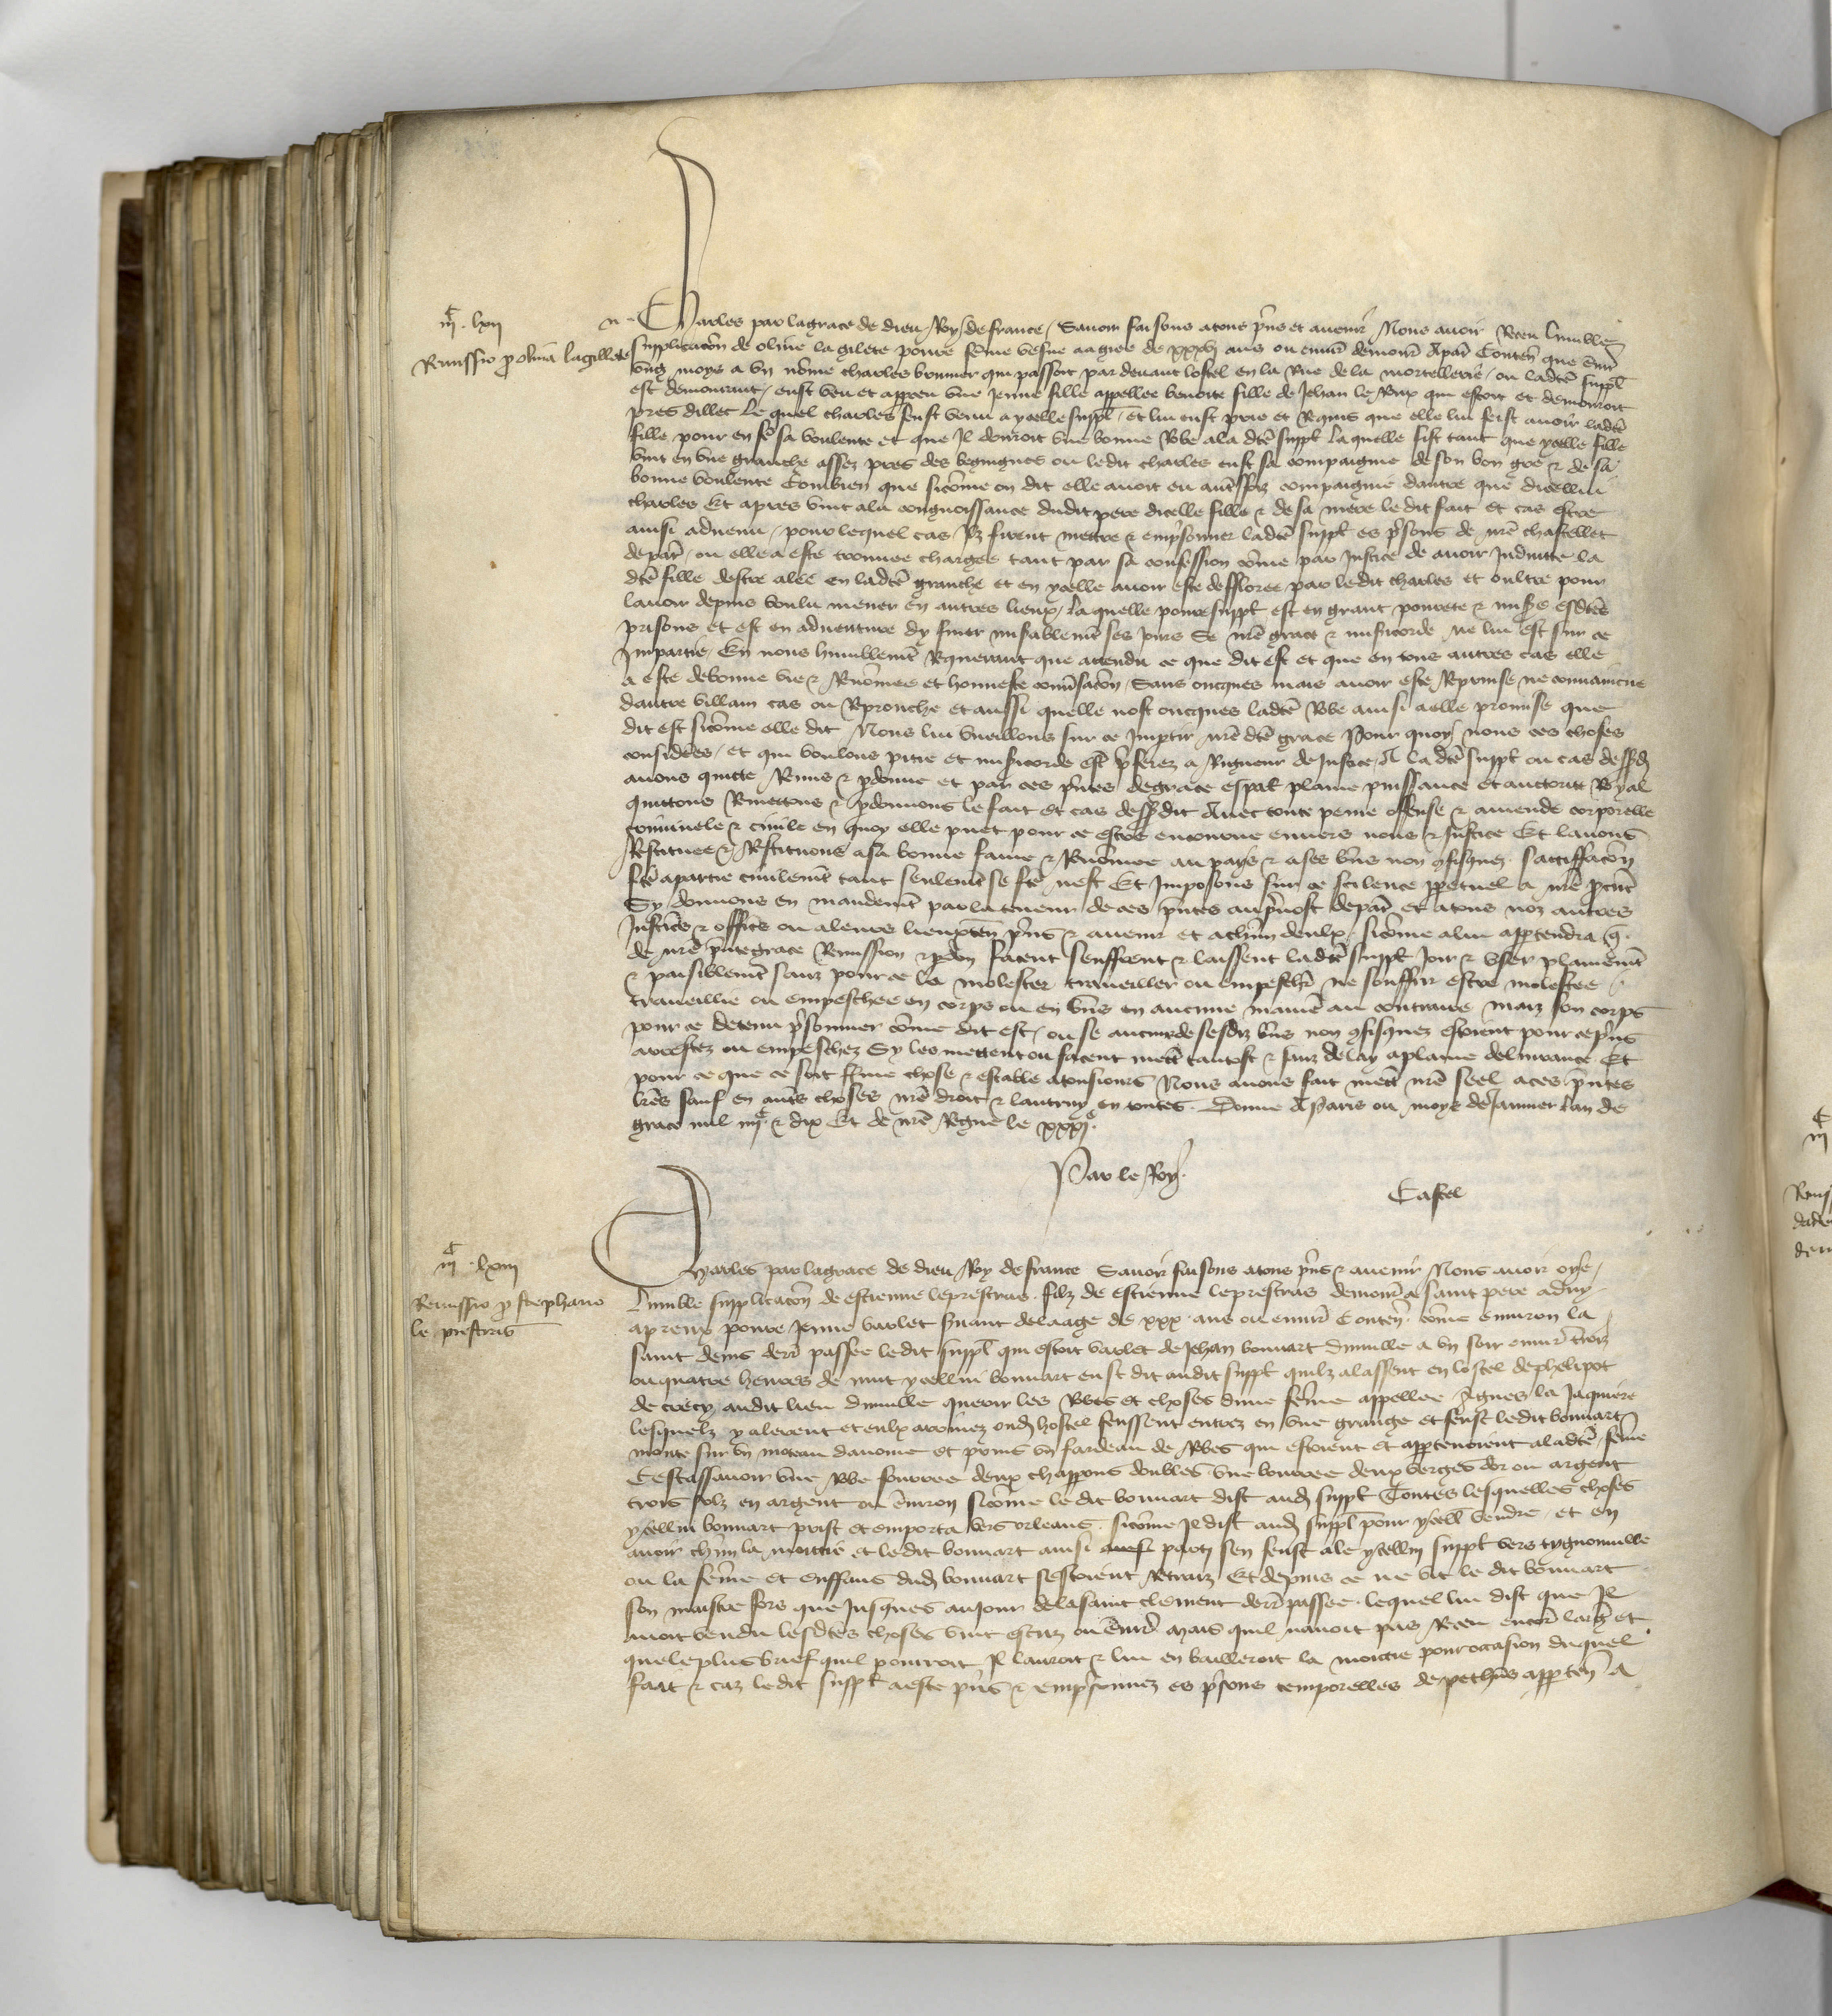 iijᶜ. lxij
Remissio p̱ oliua lagillete
Charles par la grace de dieu Roy de france Sauoir faisons a tous p̄ns et auenir Nous auoir Receu lumble
supplicac̄on de oliue la gilete poure fem̄e vefue aagiee de xxxvj ans ou enuirō demourāt A par̄ Conten̄ que enuirō
vng moys a vn nōme charles bonnier qui passoit par deuant lostel en la Rue de la mortellerie ou ladc̄e suppl̄
est demourant eust veu et apperceu vne jeune fille appellee benoite fille de Jehan le Roux qui estoit et demouroit
pres dillec Le quel charles feust venu a ycelle suppl̄ et lui eust prie et Requis que elle lui feist auoir ladc̄e
fille pour en fe sa voulente et que Il donroit vne bonne Robe a la dc̄e suppl̄ La quelle fist tant que ycelle fille
vint en vne granche assez pres des beguignes ou ledit charles eust sa compaignie de son bon gre & de sa
bonne voulente Combien que sicōme on dit elle auoit eu autrefoiz compaignie dautre que dicellui
charles Et apres vint a la congnoissance dudit pere dicelle fille & de sa mere le dit fait et cas estre
ainsi aduenu pour lequel cas Ilz firent mettre & emp̄sonner ladc̄e suppl̄ es p̄sons de nr̄e chastellet
de par̄ ou elle a este trouuee chargee tant par sa confession cōme par justice de auoir induitte la
dc̄e fille destre alee en ladc̄e granche et en ycelle auoir este defflouree par ledit charles et oultre pour
lauoir depuis voulu mener en autres lieux La quelle poure suppl̄ est en grant pourete & mis̄e esdc̄es
prisons et est en aduenture dy finer mis̄ablemēt ses jours Se nr̄e grace & mis̄icorde ne lui est sur ce
Impartie En nous humblemēt Requerant que attendu ce que dit est et que en tous autres cas elle
a este de bonne vie & Renōmee et honneste conuersac̄on Sans oncques mais auoir este Reprinse ne conuaincue
dautre villain cas ou Reprouche et aussi quelle nost oncques ladc̄e Robe ainsi a elle promise que
dit est sicōme elle dit Nous lui vueillons sur ce Imptir nr̄e dc̄e grace Pour quoy nous ces choses
consideēes et qui voulons pitie et mis̄icorde est̄ p̄ferez a Rigueur de justice A la dc̄e suppl̄ ou cas dess̄d
auons quitte Remis & p̱donne et par ces p̄ntes de grace esp̄al plaine puissance et auctorite Royal
quittons Remettons & p̱donnons le fait et cas dess̄dit Auec toute peine offense & amende corporelle
criminele & ciuile en quoy elle puet pour ce estre encourue enuers nous & justice Et lauons
Restituee & Restituons a sa bonne fame & Renōmee au pays & a ses biēs non confisquez satisfac̄on
fc̄e a partie ciuilemēt tant seulemēt se fc̄e nest Et Imposons sur ce scilence p̱petuel a nr̄e pcur̄
Sy donnons en mandemēt par la teneur de ces p̄ntes au p̄uost de par̄ et a tous noz autres
Justic̄es & offic̄es ou a leurs lieuxten̄ p̄ns & auenir et a chūn deulx sicōme a lui app̱tendra q̄
de nr̄e p̄nte grace Remission & p̱don facent seuffrent & laissent ladc̄e suppl̄ joir & vser plainemēt
& paisiblemēt sanz pour ce la molester trauueillier ou empeschr̄ ne souffrir estre molestee
trauueillie ou empeschee en corps ou en biēs en aucune manie͂ au contraire maiz son corps
pour ce detenu p̄sonnier cōme dit est ou se aucuns de sesdiz biēs non confisquez estoient pour ce p̄ns
arrestez ou empeschez Sy les mettent ou facent mett̄ tantost & sanz delay a plaine deliurance Et
pour ce que ce soit ferme chose & estable a tousiours Nous auons fait mett̄ nr̄e seel a ces p̄ntes
lr̄es sauf en aut̄s choses nr̄e droit & lautruy en toutes. Donne A Paris ou moys de Januier Lan de
grace mil iiijᶜ. & dix Et de nr̄e Regne le xxxjᵉ.
Par le Roy.
Castel
iijᶜ. lxiij
Remissio p̱ stephano
le prestrus
Charles par la grace de dieu Roy de france Sauoir faisons a tous p̄ns & auenir Nous auoir oye
Lumble supplicac̄on de estienne leprestras filz de Estienne leprestras demourāt a saint pere
poure jeune varlet s̄uant de laage de xxx ans ou enuirō Conten̄ cōme enuiron la
saint denis derr̄ passee le dit suppl̄ qui estoit varlet de Jehan bonnart a vn soir enuirō trois
ou quatre heures de nuit ycellui bonnart eust dit audit suppl̄ quilz alassent en lostel de phelipot
de crecy audit lieu querir les Robes et choses dune fem̄e appellee Agnes la Jaquiere
lesquelz y alerent et eulx arriuez oudit hostel feussent entrez en vne grange et feust ledit bonnart
monte sur vn moreau dauoine et prins vn fardeau de Robes qui estoient et app̱tenoient a ladc̄e fem̄e
Cestassauoir vne Robe fourree deux chapperons doubles vne bourree deux verges dor ou argent
trois solz en argent ou enuiron sicōme le dit bonnart dist audit suppl̄ Toutes lesquelles choses
ycellui bonnart prist et emporta vers orleans sicōme Il dist audit suppl̄ pour yceulx vendre et en
auoir chūn la moittie et le dit bonnart ainsi party sen feust ale ycellui suppl̄ vers tygnonuille
ou la fem̄e et enffans dudit bonnart sestoient Retraiz Et depuis ce ne vit le dit bonnart
son maistre fors que jusques au jour de la saint clement derr̄ passee lequel lui dist que Il
auoit vendu lesdc̄es choses vint escuz ou enuirō mais quil nauoit pas Receu encor̄ larḡ et
que le plus brief quil pourroit Il lauroit & lui en bailleroit la moittie pour occasion duquel
fait & caz le dit suppl̄ a este p̄ns & emp̄sonnez es p̄sons temporelles de app̱ten̄ A